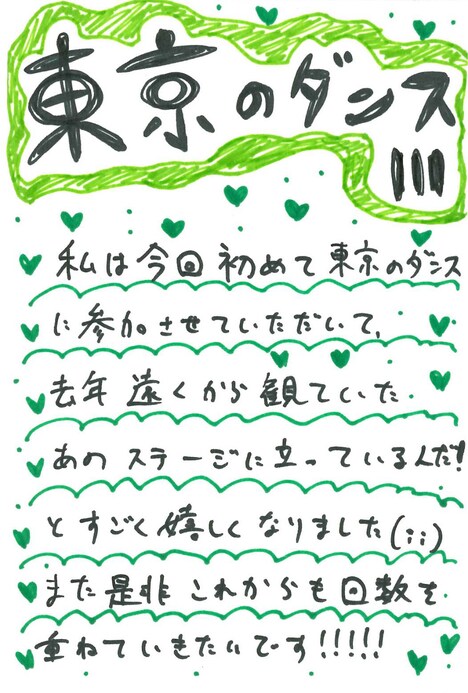 東京のダンス
!!!
私は今回初めて東京のダンス
に参加させていただいて、
去年遠くから観ていた
あのステージに立っているんだ!
とすごく嬉しくなりました(;;)
また是非これからも回数を
重ねていきたいです!!!!!